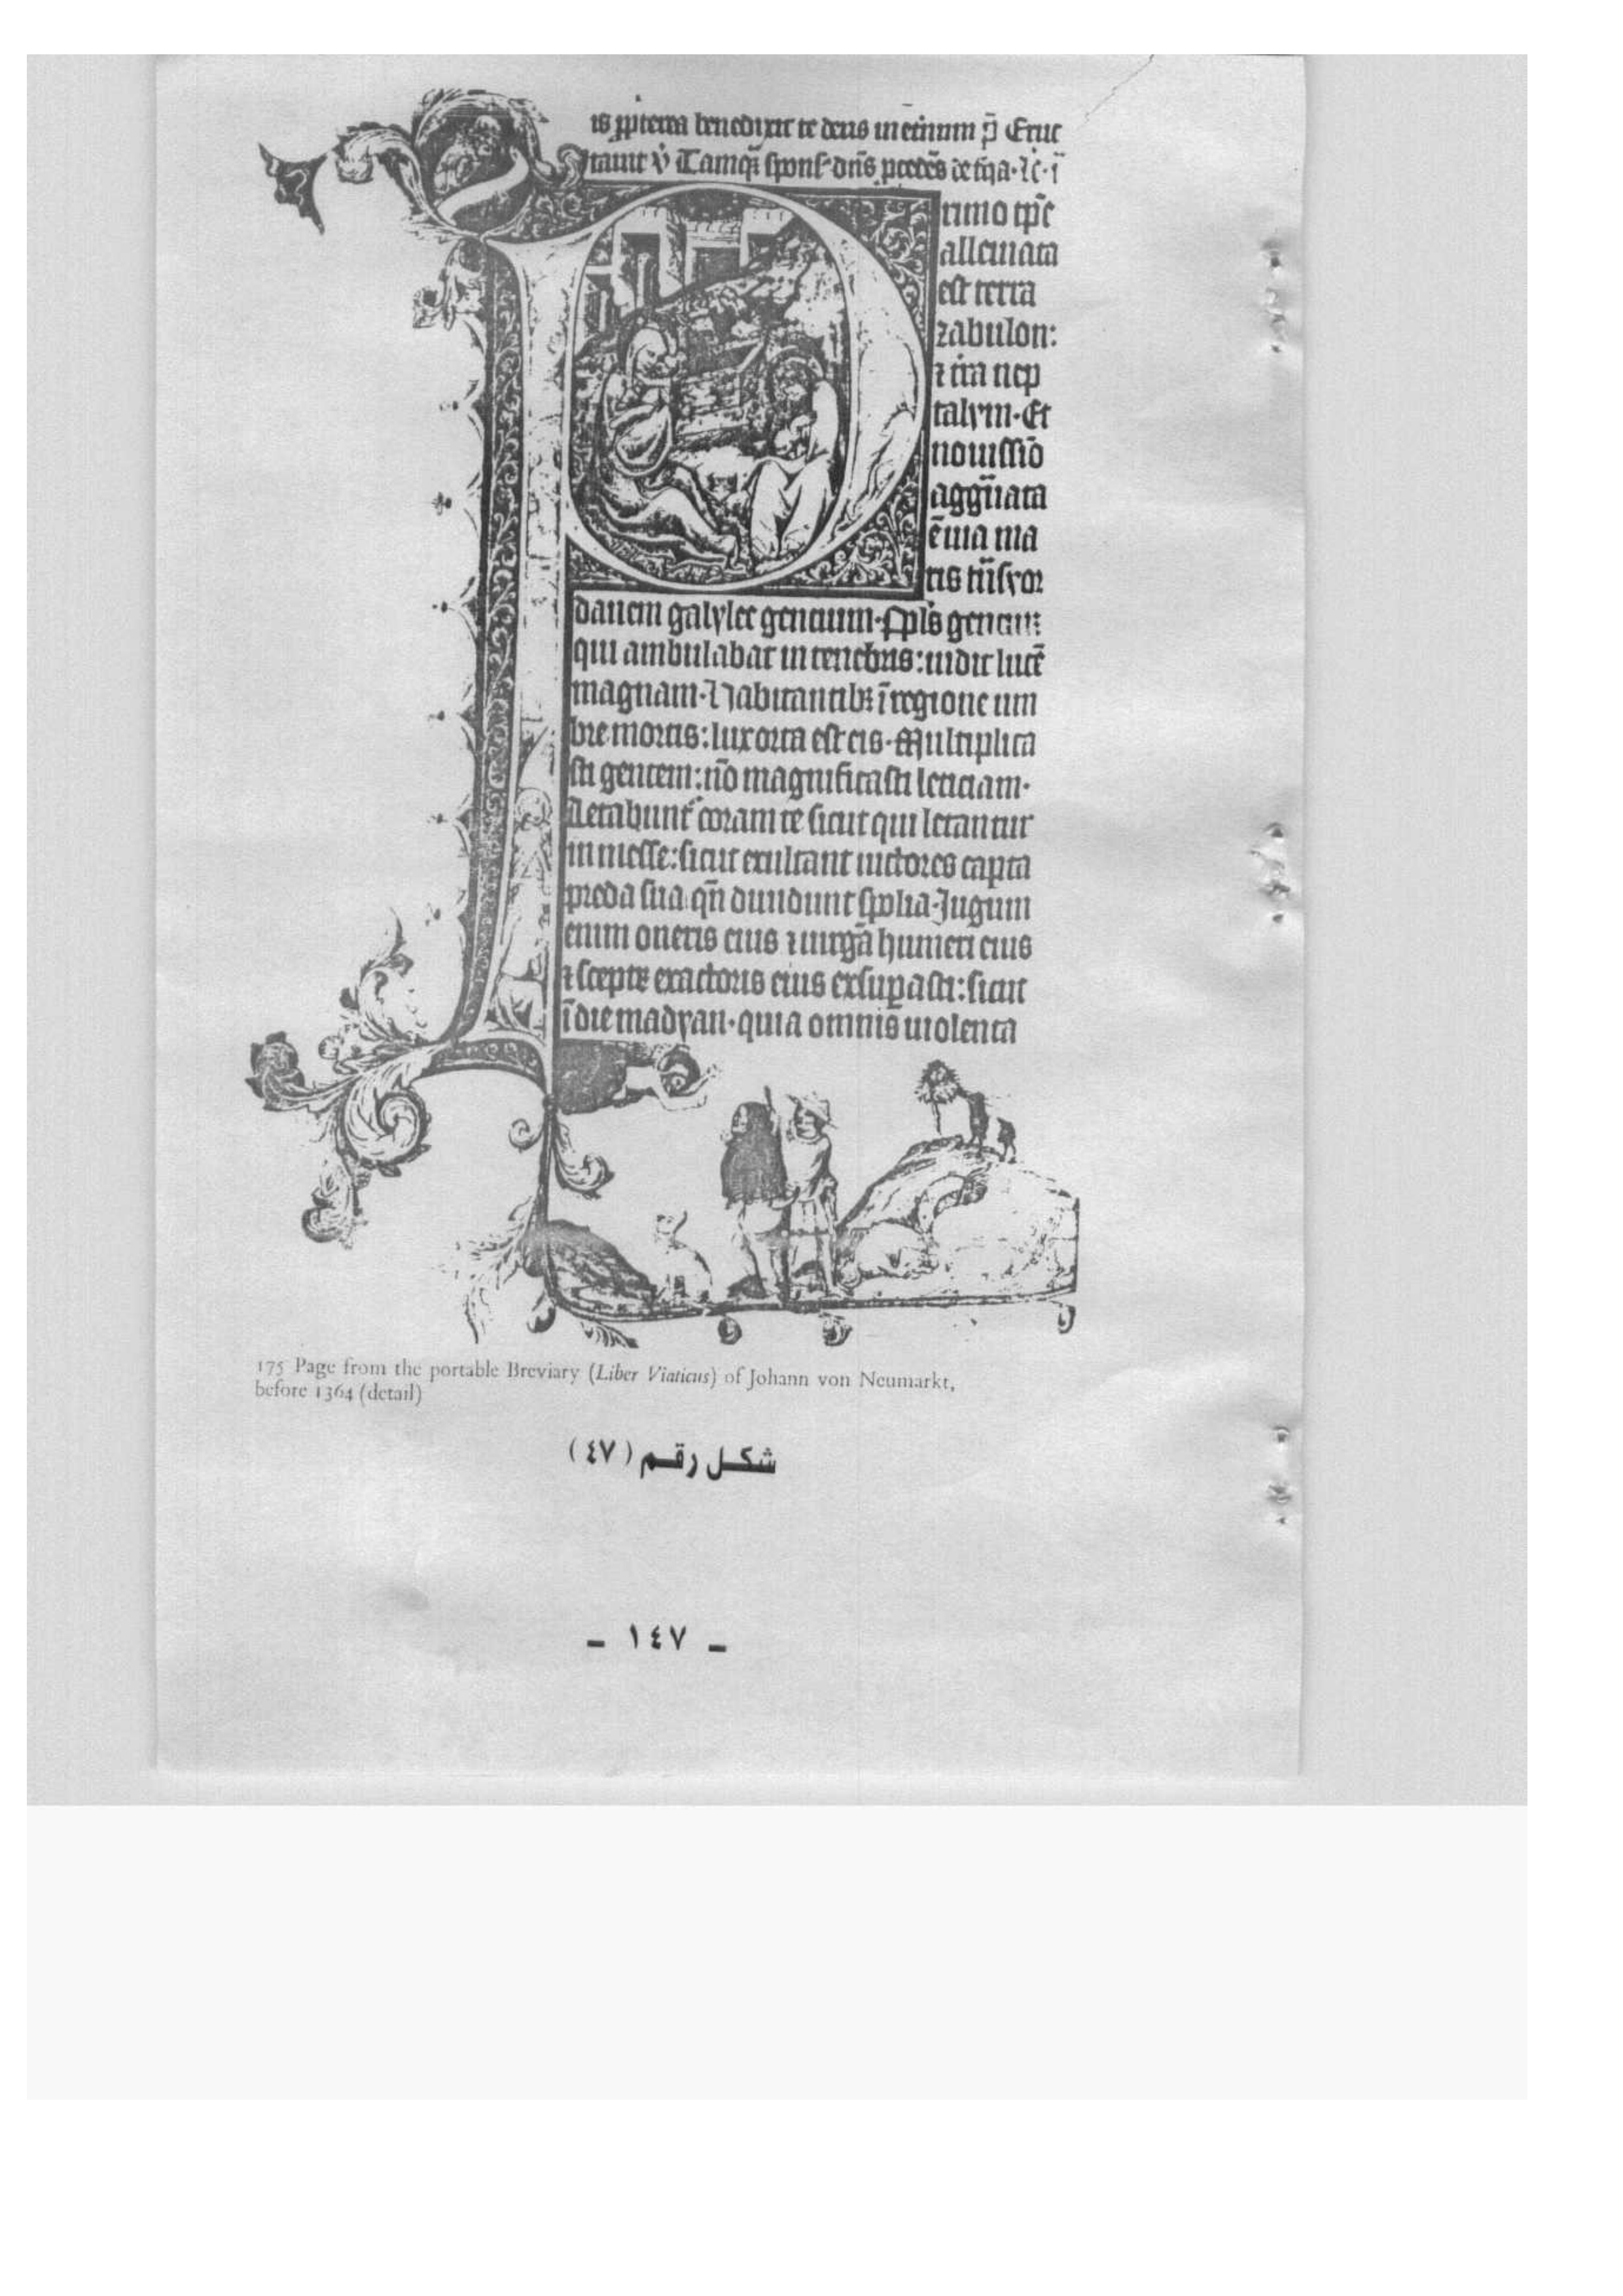 is ꝓpterea benedixit te deus in eternum p̄ Eruc
tauit v̇
rimo tp̄e
alleuiata
est terra
zabulon:
⁊ t̄ra nep
talym·Et
nouissīo
agg̃uata
ē uia ma
ris
danem galylee gencium·Pp̄ls gencium
qui ambulabat in tenebris: uidit lucē
magnam·Habitantibꝫ ī regione um
bre mortis: lux orta est eis·Multiplica
sti gentem: nō magnificasti leticiam·
Letabunt᷑ coram te sicut qui letantur
in messe: sicut exultant uictores capta
preda sua qn̄ diuidunt spolia·Jugum
enim oneris eius ⁊ uirgā humeri eius
⁊ sceptꝝ exactoris eius exsuꝑasti: sicut
ī die madyan·quia omnis uiolenta
175 Page from the portable Breviary (Liber Viaticus) of Johann von Neumarkt,
before 1364 (detail)
شكل رقم (٤٧)
- ١٤٧ -